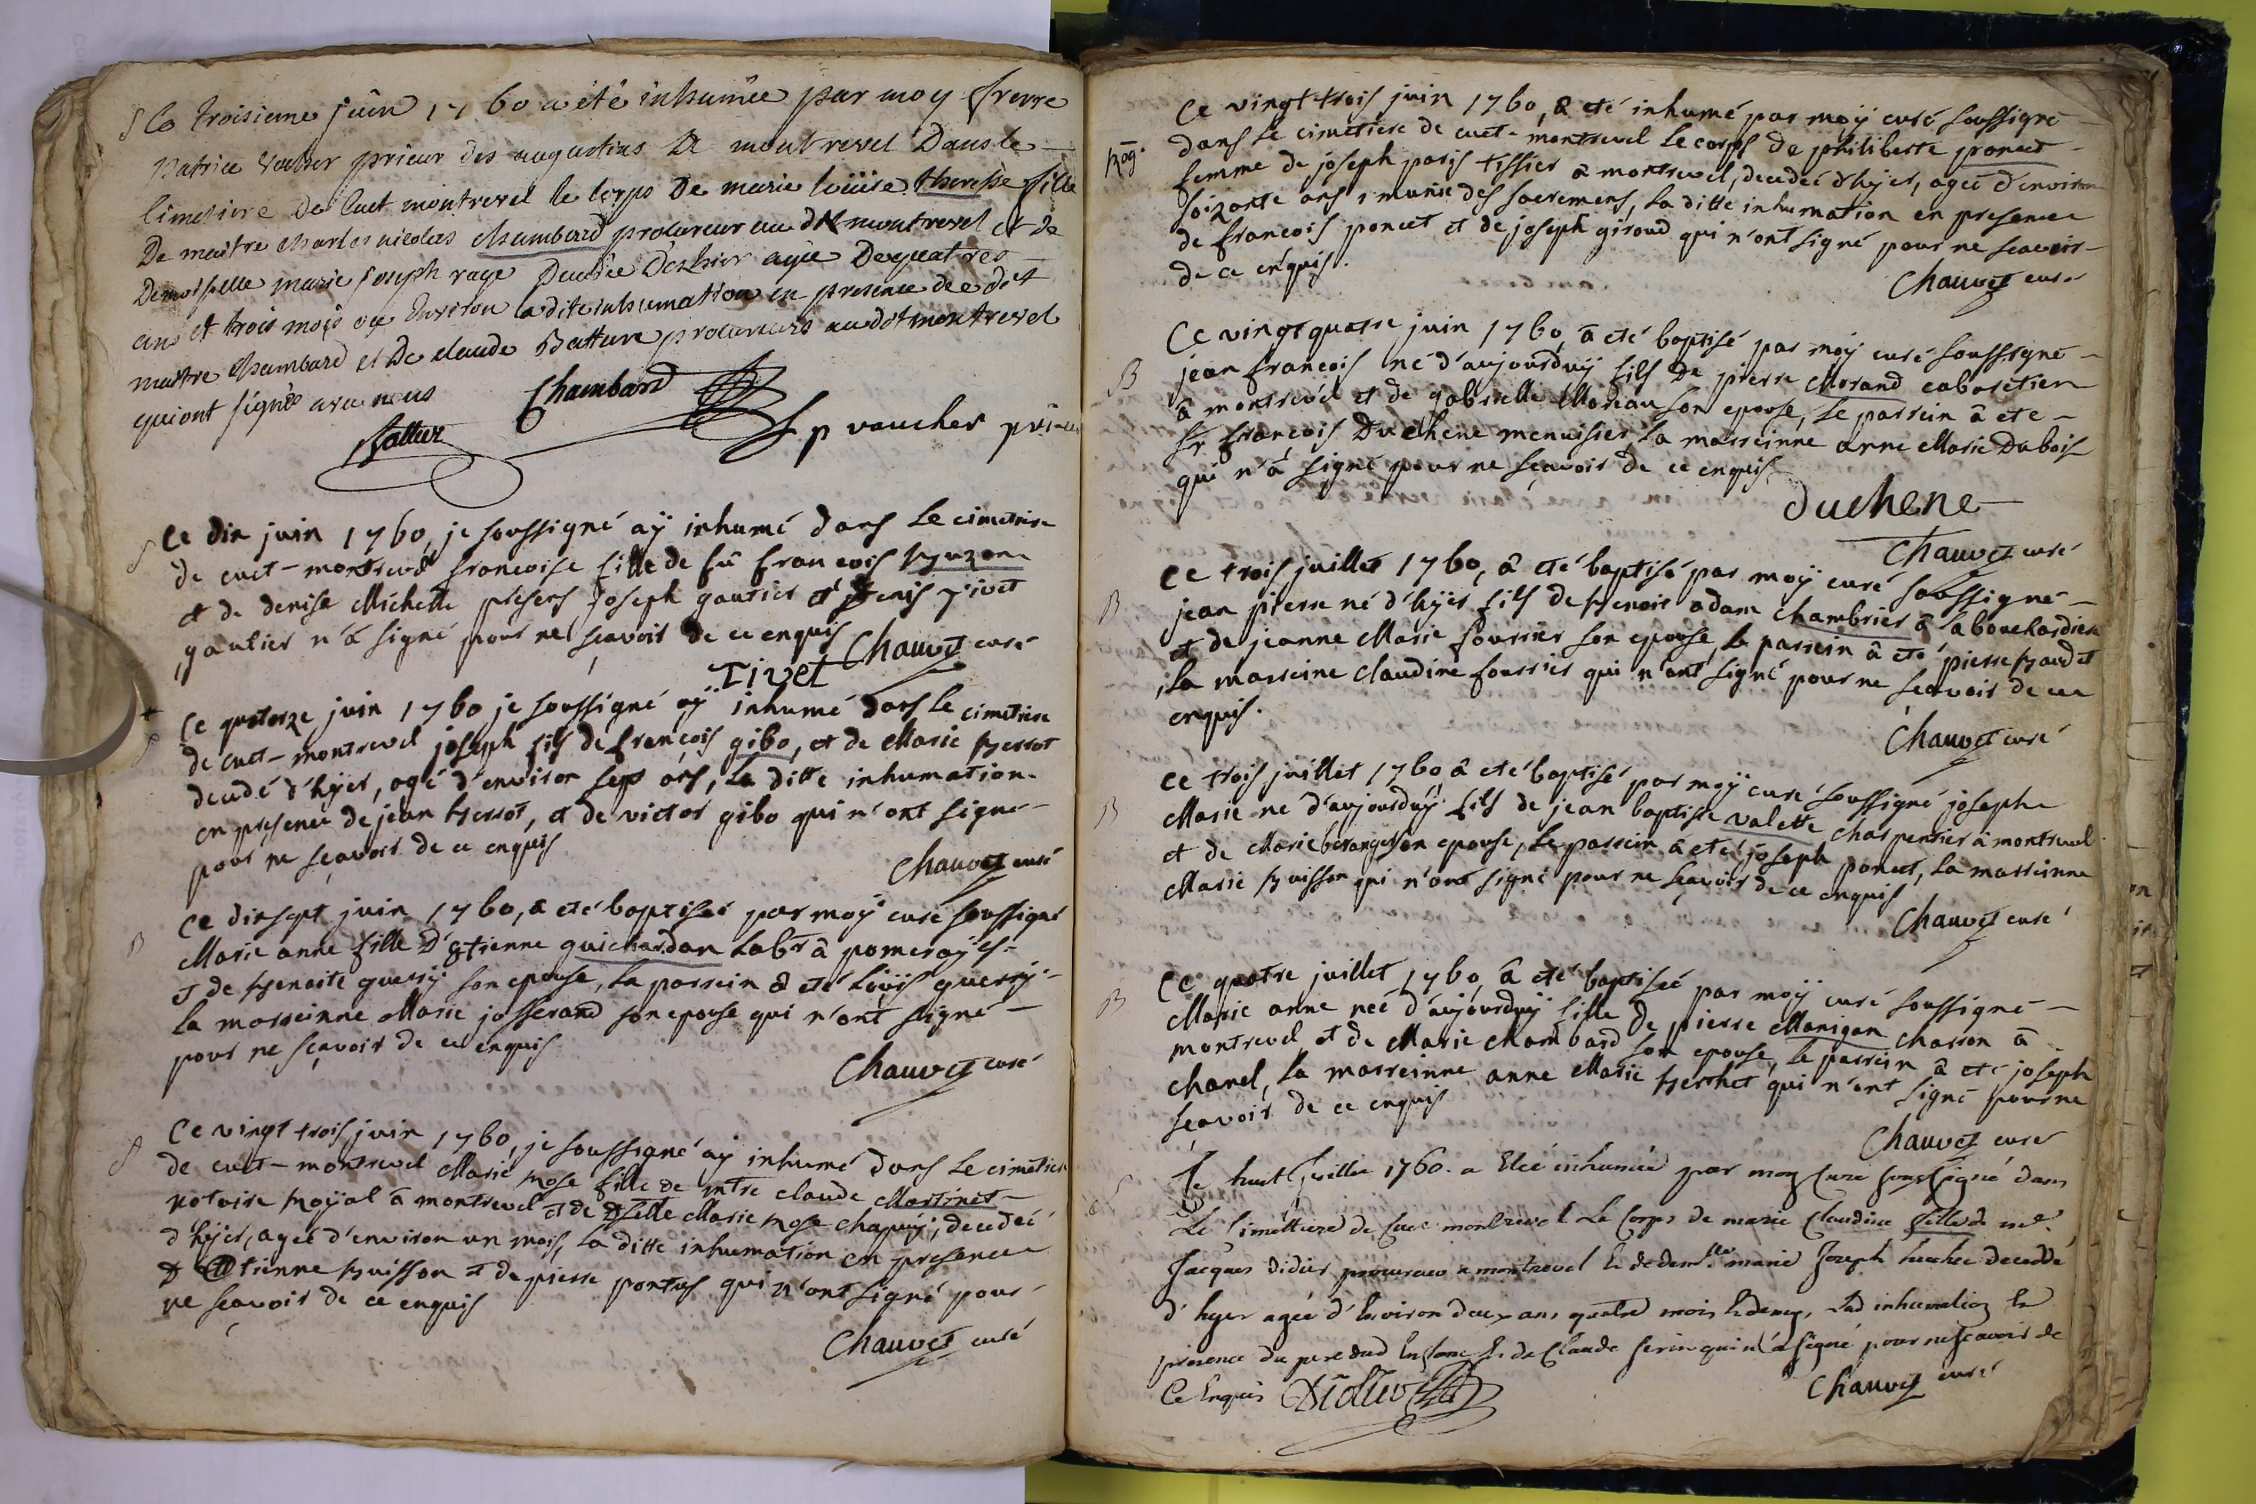 S Ce troisieme juin 1760 a eté inhumée par moy frerre
Patrice Vaucher prieur des augustins De montrevel Dans le
Cimetiere De Cuet montrevel le Corps De marie loüise therese fille
De maitre charles nicolas chambard procureur au dit montrevel et de
Demoiselle marie joseph rage Decedée Deshier agée De quatres
ans et trois mois ou Environ la dite inhumation en presence de edit
maitre Chambard et De claude Batture procureurs au dit montrevel
qui ont signés avec nous
Chambard
Battur
f p vaucher prieur
S Ce dix juin 1760, je soussigné aÿ inhumé dans le cimetiere
de cuet-montrevel francoise fille de fû francois
et de denise Michelle presens joseph gautier et denis Tivet
gautier n'â signé pour ne sçavoir de ce enquis Chauvet curé
Tivet
+
S Ce quatorze juin 1760 je soussigné aÿ inhumé dans le cimetiere
de cuet-montrevel joseph fils de françois gibo, et de Marie Berrot
decedé d'hÿer, agé d'environ sept ans, la ditte inhumation
en presence de jean Berrot, et de victor gibo qui n'ont signé
pour ne sçavoir de ce enquis
Chauvet curé
B Ce dixsept juin 1760, â eté baptisée par moÿ curé soussigné
Marie anne fille d'Etienne guichardan labr â pomeraÿs
et de Benoite guerrÿ son epouse, la parrein â eté Loüis guerrÿ
la marreinne Marie josserand son epouse qui n'ont signé
pour ne sçavoir de ce enquis
Chauvet curé
S Ce vingt trois juin 1760, je soussigné aÿ inhumé dans le cimetiere
de cuet-montrevel Marie Rose fille de mtre claude Martinet
notaire Roÿal â montrevel et de dselle Marie Rose chapuÿ, decedeé
d'hÿer, ageé d'environ un mois, la ditte inhumation en presence
d'Etienne Buisson et de pierre pontus qui n'ont signé pour
ne sçavoir de ce enquis
Chauvet curé
Ce vingt trois juin 1760, â eté inhumé par moÿ curé soussigné
dans le cimetiere de cuet-montrevel le corps de philiberte poncet
femme de joseph paris tissier â montrevel, decedeé d'hÿer, ageé d'environ
soixante ans, munie des sacremens, la ditte inhumation en presence
de francois poncet et de joseph giroud qui n'ont signé pour ne sçavoir
de ce enquis.
Chauvet curé
Ce vingt quatre juin 1760, â eté baptisé par moÿ curé soussigné
B jean francois né d'aujourduÿ fils De pierre Morand cabaretier
â montrevel et de gabrielle Moreau son epouse, le parrein â eté
Sr francois Duchene menuisier, la marreinne anne Marie Dubois
qui n'â signé pour ne sçavoir de ce enquis
Duchene
Chauvet curé
Ce trois juillet 1760, â eté baptisé par moÿ curé soussigné
B jean pierre né d'hÿer fils de Benoit adam chambrier â la bouchardiere
et de jeanne Marie fourrier son epouse, le parrein â eté pierre Baudet
la marreine claudine fourrier qui n'ont signé pour ne sçavoir de ce
enquis.
Chauvet curé
Ce trois juillet 1760 â eté baptisé par moÿ curé soussigné joseph
B Marie né d'aujourduÿ fils de jean baptiste valette charpentier â montrevel
et de Marie beranger son epouse, le parrein â eté joseph poncet, la marreinne
Marie Buisson qui n'ont signé pour ne sçavoir de ce enquis
Chauvet curé
Ce quatre juillet 1760, â eté baptisée par moÿ curé soussigné
B Marie anne neé d'aujourduÿ fille De pierre Manigan charron â
montrevel et de Marie chambard son epouse, le parrein â eté joseph
chanel, la marreinne anne Marie Berthet qui n'ont signé pour ne
sçavoir de ce enquis
Chauvet curé
Le huit juillet 1760. a Eté inhumée par moy Curé soussigné dans
Le Cimettiere de Cuet montrevel Le Corps de marie Claudine fille de me
Jacques Didier procureur a montrevel Et de demlle marie Joseph decedée
d'hyer agée d'Environ deux ans quatre mois Et demy, Lad inhumation En
présence du pere dud Enfant Et de Claude qui n'a signé pour ne sçavoir de
Ce Enquis Didier
Chauvet curé